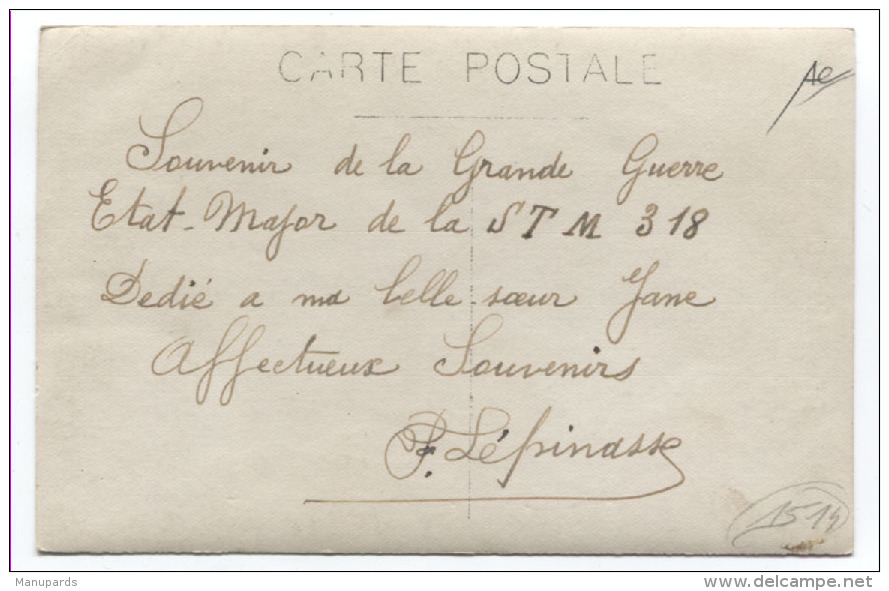 CARTE POSTALE
Souvenir de la Grande Guerre
Etat-Major de la STM 318
Dedié a ma belle-sœur Jane
Affectueux Souvenirs
P. Lépinasse
1514
Manupards
www.delcampe.net